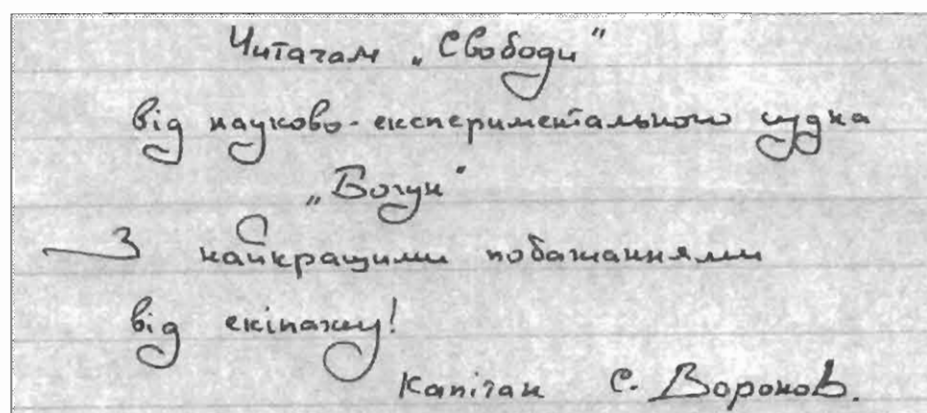 Читачам „Свободи"
від науково-експериментального судна
„Богун"
З найкращими побажаннями
від екіпажу!
Капітан С. Воронов.